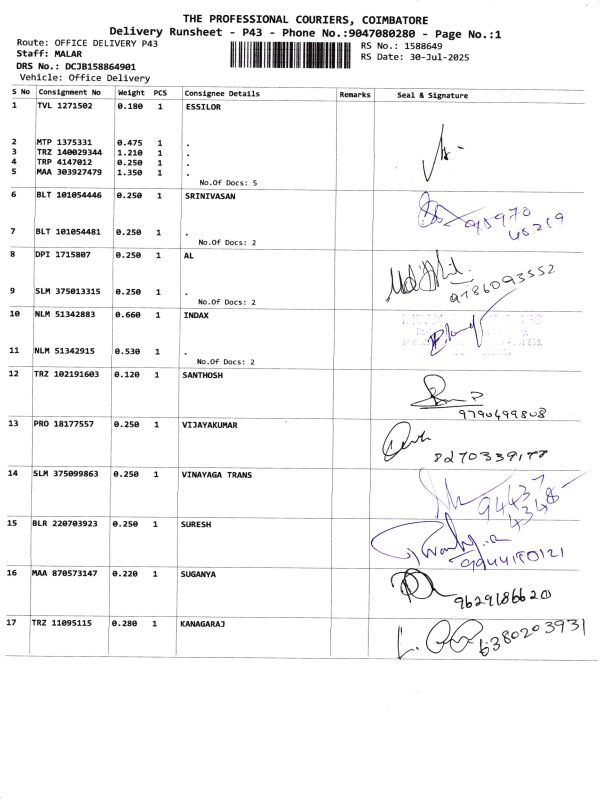 THE PROFESSIONAL COURIERS, COIMBATORE
Delivery Runsheet - P43 - Phone No.:9047080280 - Page No.:1
Route: OFFICE DELIVERY P43
RS No.: 1588649
Staff: MALAR
RS Date: 30-Jul-2025
DRS No.: DCJB158864901
Vehicle: Office Delivery
S No Consignment No Weight PCS Consignee Details Remarks Seal & Signature
1 TVL 1271502 0.180 1 ESSILOR
2 MTP 1375331 0.475 1 .
3 TRZ 140029344 1.210 1 .
4 TRP 4147012 0.250 1 .
5 MAA 303927479 1.350 1 .
No.Of Docs: 5
6 BLT 101054446 0.250 1 SRINIVASAN
7 BLT 101054481 0.250 1 .
No.Of Docs: 2
8 DPI 1715807 0.250 1 AL
9786093552
9 SLM 375013315 0.250 1 .
No.Of Docs: 2
10 NLM 51342883 0.660 1 INDAX
11 NLM 51342915 0.530 1 .
No.Of Docs: 2
12 TRZ 102191603 0.120 1 SANTHOSH
9790499808
13 PRO 18177557 0.250 1 VIJAYAKUMAR
14 SLM 375099863 0.250 1 VINAYAGA TRANS
94437
4348
15 BLR 220703923 0.250 1 SURESH
9944190121
16 MAA 870573147 0.220 1 SUGANYA
9629186620
17 TRZ 11095115 0.280 1 KANAGARAJ
6380203931